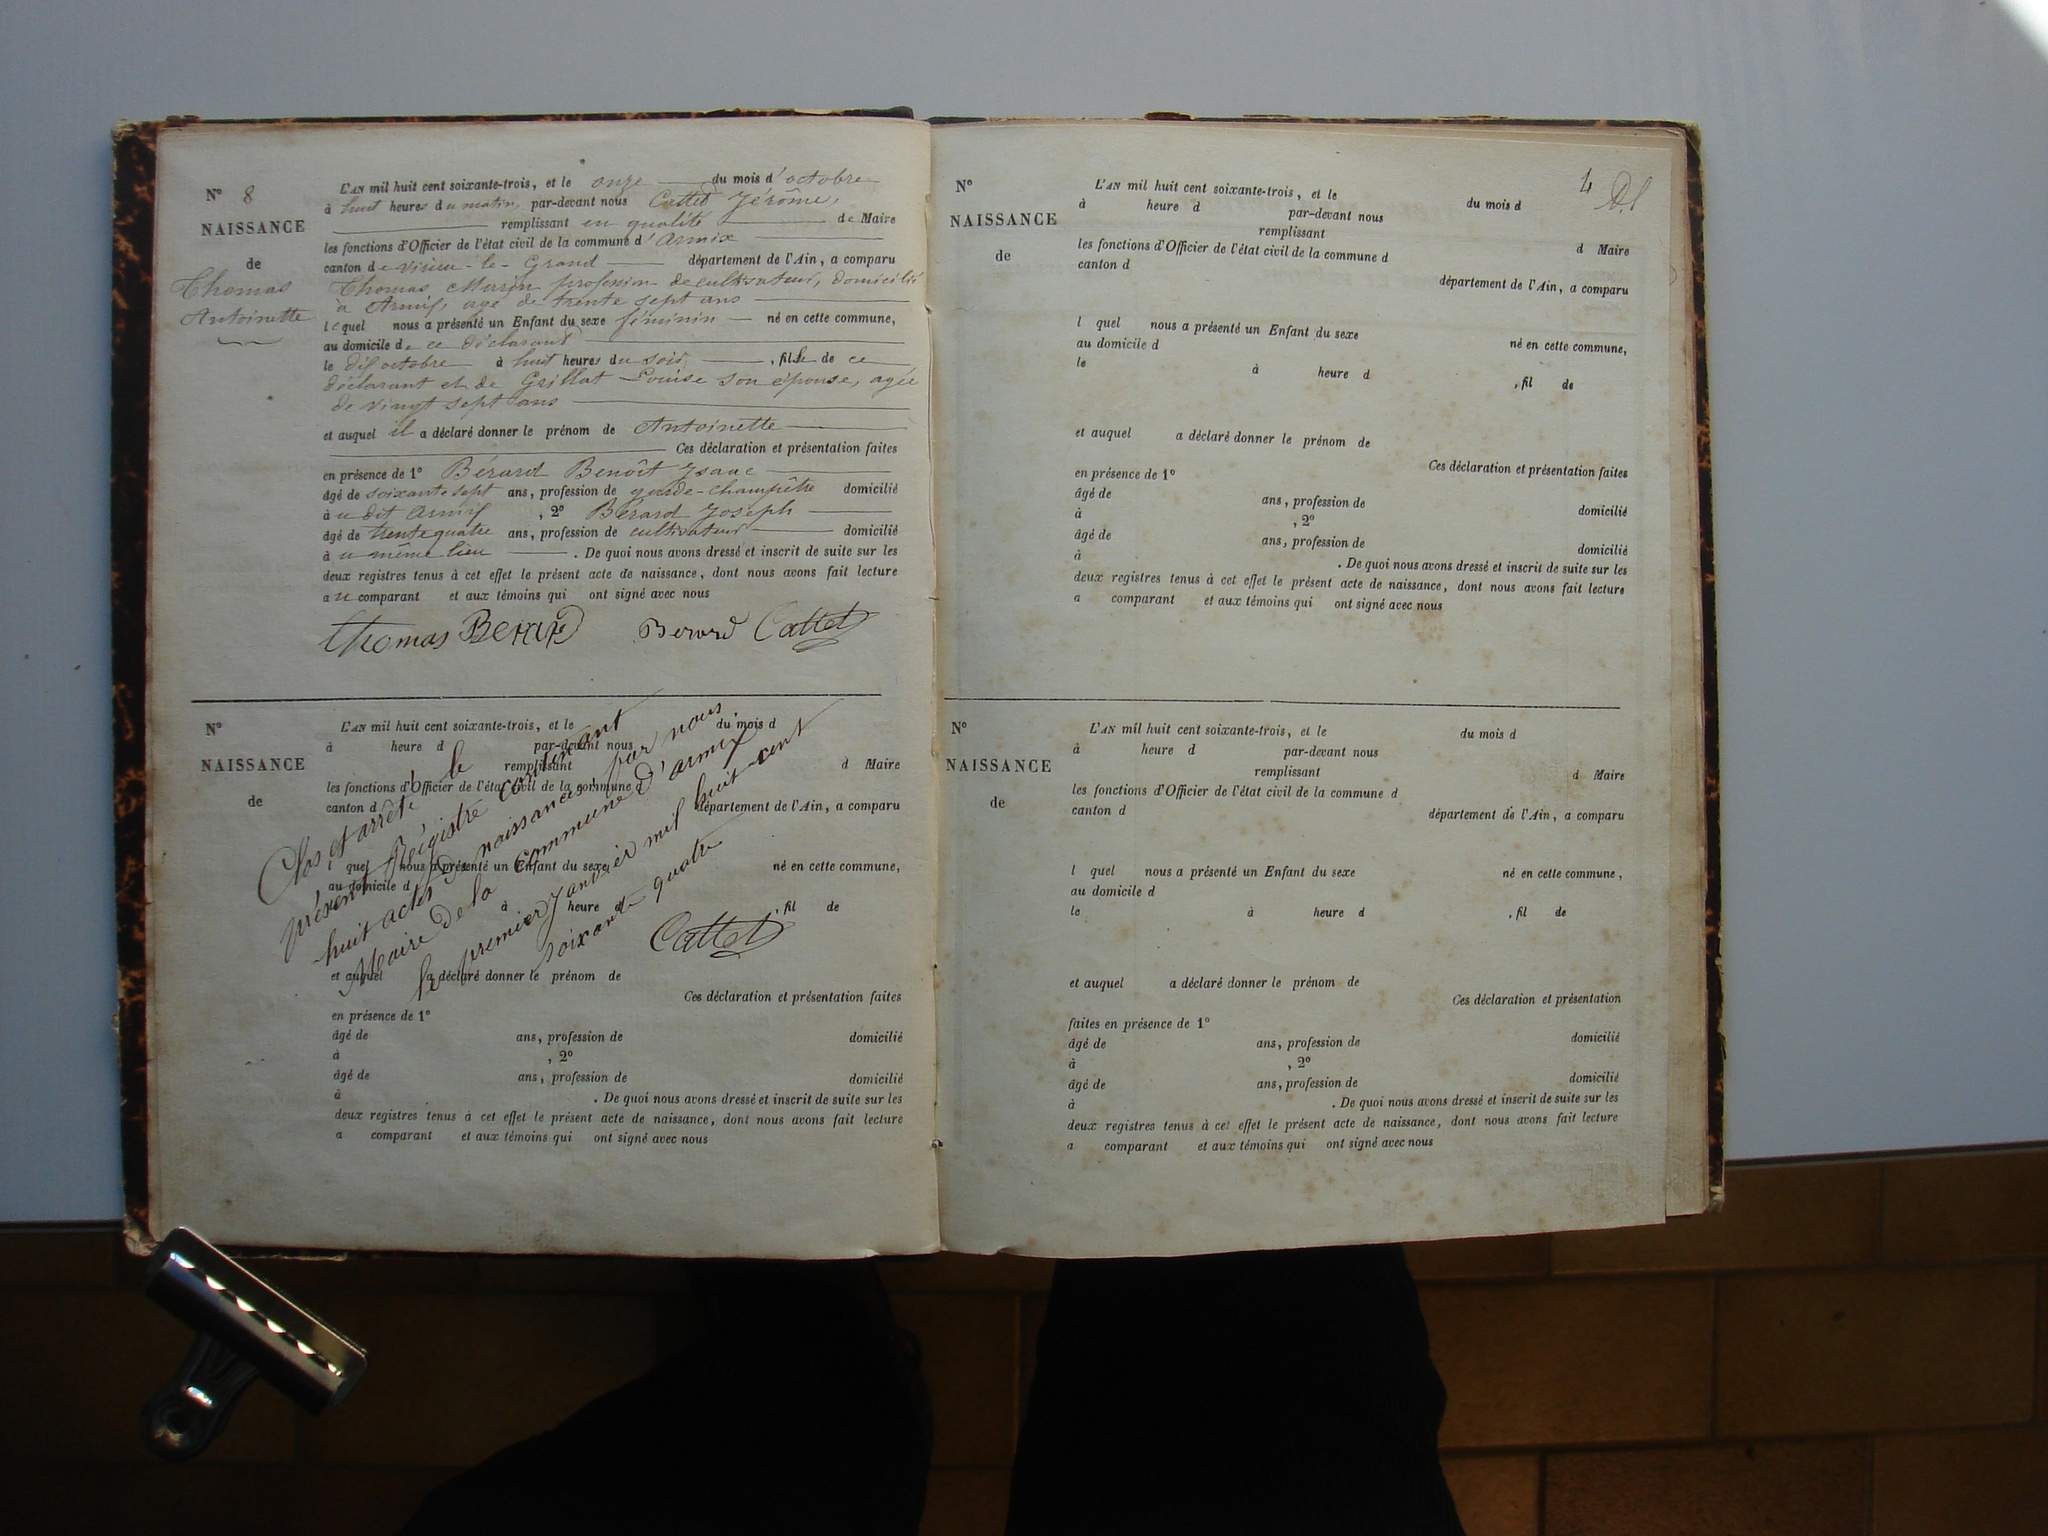 N° 8
NAISSANCE
de
Thomas
Antoinette
L'AN mil huit cent soixante-trois, et le onze du mois d'octobre
à huit heures du matin, par-devant nous Cattet Jérôme,
remplissant en qualité de Maire
les fonctions d'Officier de l'état civil de la commune d'armix
canton de virieu-le-Grand département de l'Ain, a comparu
Thomas profession de cultivateur, domicilié
à Armix, agé de trente sept ans
lequel nous a présenté un Enfant du sexe féminin né en cette commune,
au domicile de ce déclarant
le dix octobre à huit heures du soir, fille de ce
déclarant et de Grillat Louise son épouse, agée
de vingt sept ans
et auquel il a déclaré donner le prénom de Antoinette
Ces déclaration et présentation faites
en présence de 1° Bérard Benoît Isaac
âgé de soixante sept ans, profession de garde-champêtre domicilié
à udit Armix, 2° Bérard Joseph
âgé de trente quatre ans, profession de cultivateur domicilié
à u même lieu. De quoi nous avons dressé et inscrit de suite sur les
deux registres tenus à cet effet le présent acte de naissance, dont nous avons fait lecture
au comparant et aux témoins qui ont signé avec nous
Thomas Berard Berard Cattet
N°
NAISSANCE
de
L'AN mil huit cent soixante-trois, et le du mois d
à heure d par-devant nous
remplissant d Maire
les fonctions d'Officier de l'état civil de la commune d
canton d département de l'Ain, a comparu
l quel nous a présenté un Enfant du sexe né en cette commune,
au domicile d
à heure d, fil de
et auquel a déclaré donner le prénom de
Ces déclaration et présentation faites
en présence de 1°
âgé de ans, profession de domicilié
à , 2°
âgé de ans, profession de domicilié
à . De quoi nous avons dressé et inscrit de suite sur les
deux registres tenus à cet effet le présent acte de naissance, dont nous avons fait lecture
a comparant et aux témoins qui ont signé avec nous
Clos et arrêté le
présent Régistre contenant
huit actes de naissances, par nous
Maire de la commune d'armix
le premier Janvier mil huit cent
soixante quatre
Cattet
4
N°
NAISSANCE
de
L'AN mil huit cent soixante-trois, et le du mois d
à heure d par-devant nous
remplissant d Maire
les fonctions d'Officier de l'état civil de la commune d
canton d département de l'Ain, a comparu
l quel nous a présenté un Enfant du sexe né en cette commune,
au domicile d
le à heure d, fil de
et auquel a déclaré donner le prénom de
Ces déclaration et présentation faites
en présence de 1°
âgé de ans, profession de domicilié
à , 2°
âgé de ans, profession de domicilié
à . De quoi nous avons dressé et inscrit de suite sur les
deux registres tenus à cet effet le présent acte de naissance, dont nous avons fait lecture
a comparant et aux témoins qui ont signé avec nous
N°
NAISSANCE
de
L'AN mil huit cent soixante-trois, et le du mois d
à heure d par-devant nous
remplissant d Maire
les fonctions d'Officier de l'état civil de la commune d
canton d département de l'Ain, a comparu
l quel nous a présenté un Enfant du sexe né en cette commune,
au domicile d
le à heure d, fil de
et auquel a déclaré donner le prénom de
Ces déclaration et présentation
faites en présence de 1°
âgé de ans, profession de domicilié
à , 2°
âgé de ans, profession de domicilié
à . De quoi nous avons dressé et inscrit de suite sur les
deux registres tenus à cet effet le présent acte de naissance, dont nous avons fait lecture
a comparant et aux témoins qui ont signé avec nous